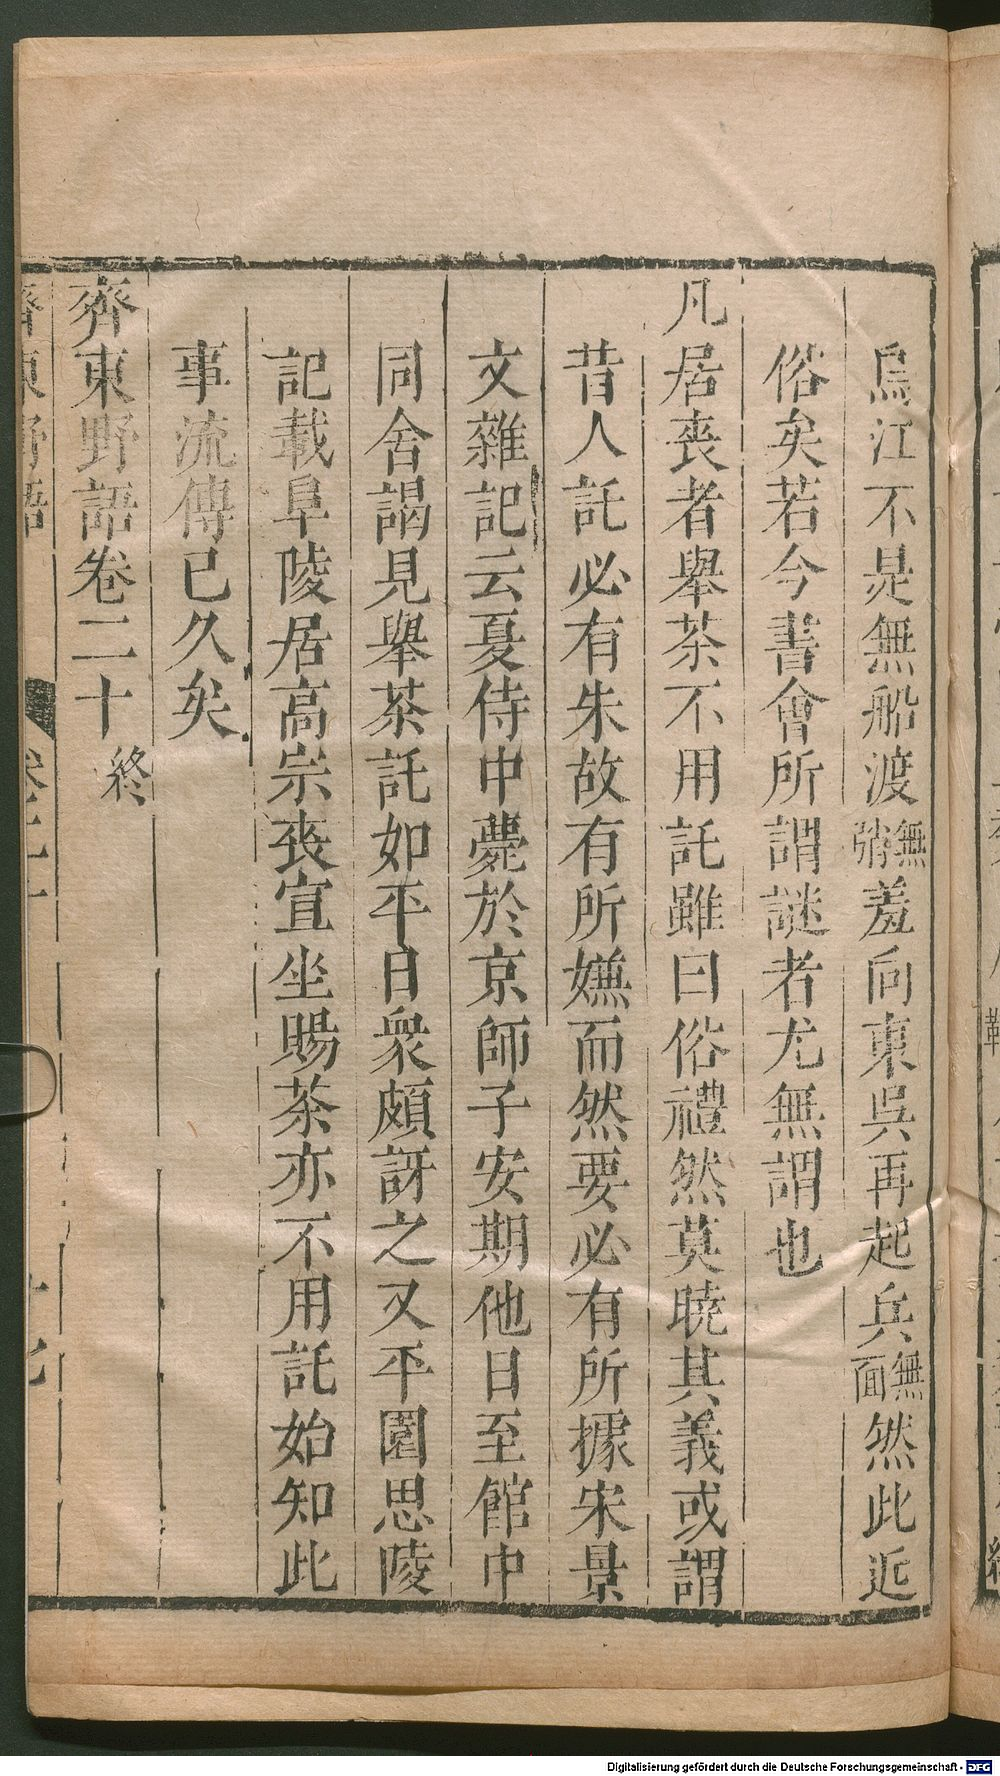 烏江不是無船渡無艄羞向東吳再起兵無面然此近
俗矣若今書會所謂謎者尤無謂也
凡居喪者舉茶不用託雖曰俗禮然莫曉其義或謂
昔人託必有朱故有所嫌而然要必有所據宋景
文雜記云夏侍中薨於京師子安期他日至館中
同舍謁見舉茶託如平日衆頗訝之又平園思陵
記載阜陵居高宗喪宣坐賜茶亦不用託始知此
事流傳已久矣
齊東野語卷二十 終
齊東野語 卷二十
Digitalisierung gefördert durch die Deutsche Forschungsgemeinschaft - DFG